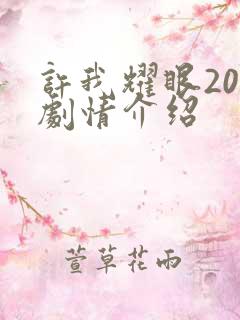 許我耀眼20
劇情介紹
萱草花雨